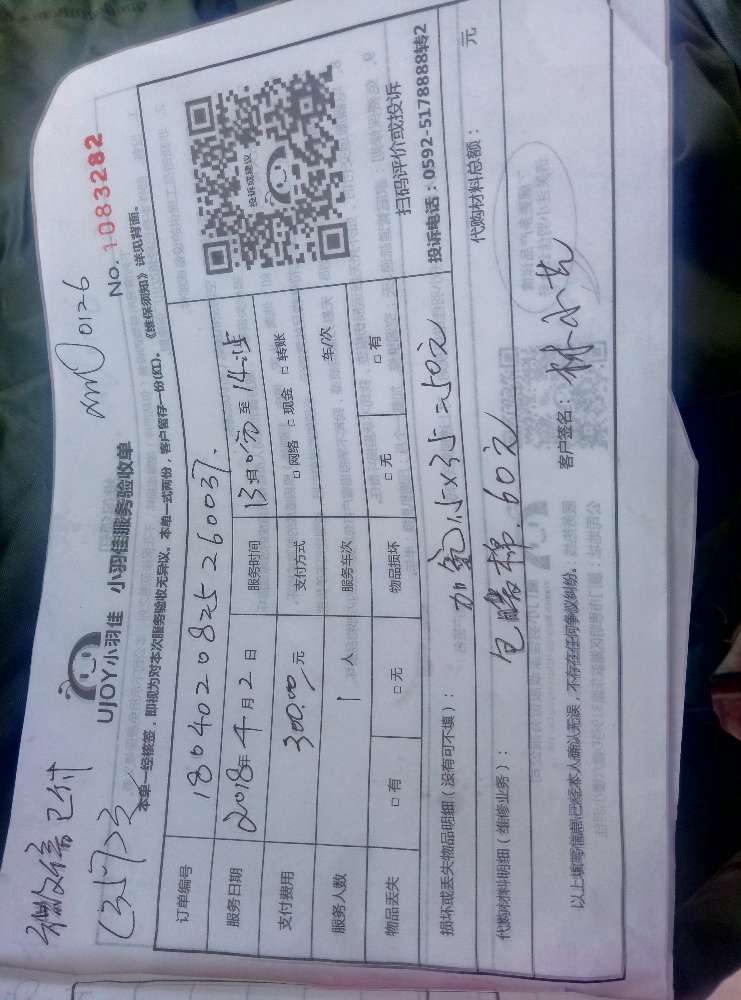 微信已付
UJOY小羽佳 小羽佳服务验收单
0126
No. 1083282
本单一经核签，即视为对本次服务验收无异议。本单一式两份，客户留存一份(红)。《维保须知》详见背面。
订单编号 1804020825260037.
服务日期 2018年4月2日 服务时间 至
支付费用 300.00 元 支付方式 □网络 □现金 □转账
服务人数 1 人 服务车次 车/次
物品丢失 □有 □无 物品损坏 □无 □有
投诉或建议
扫码评价或投诉
投诉电话：0592-5178888转2
损坏或丢失物品明细（没有可不填）： 加氟
代购材料明细（维修业务）： 包 棉.60元
代购材料总额： 元
以上填写信息已经本人确认无误，不存在任何争议纠纷。 客户签名：